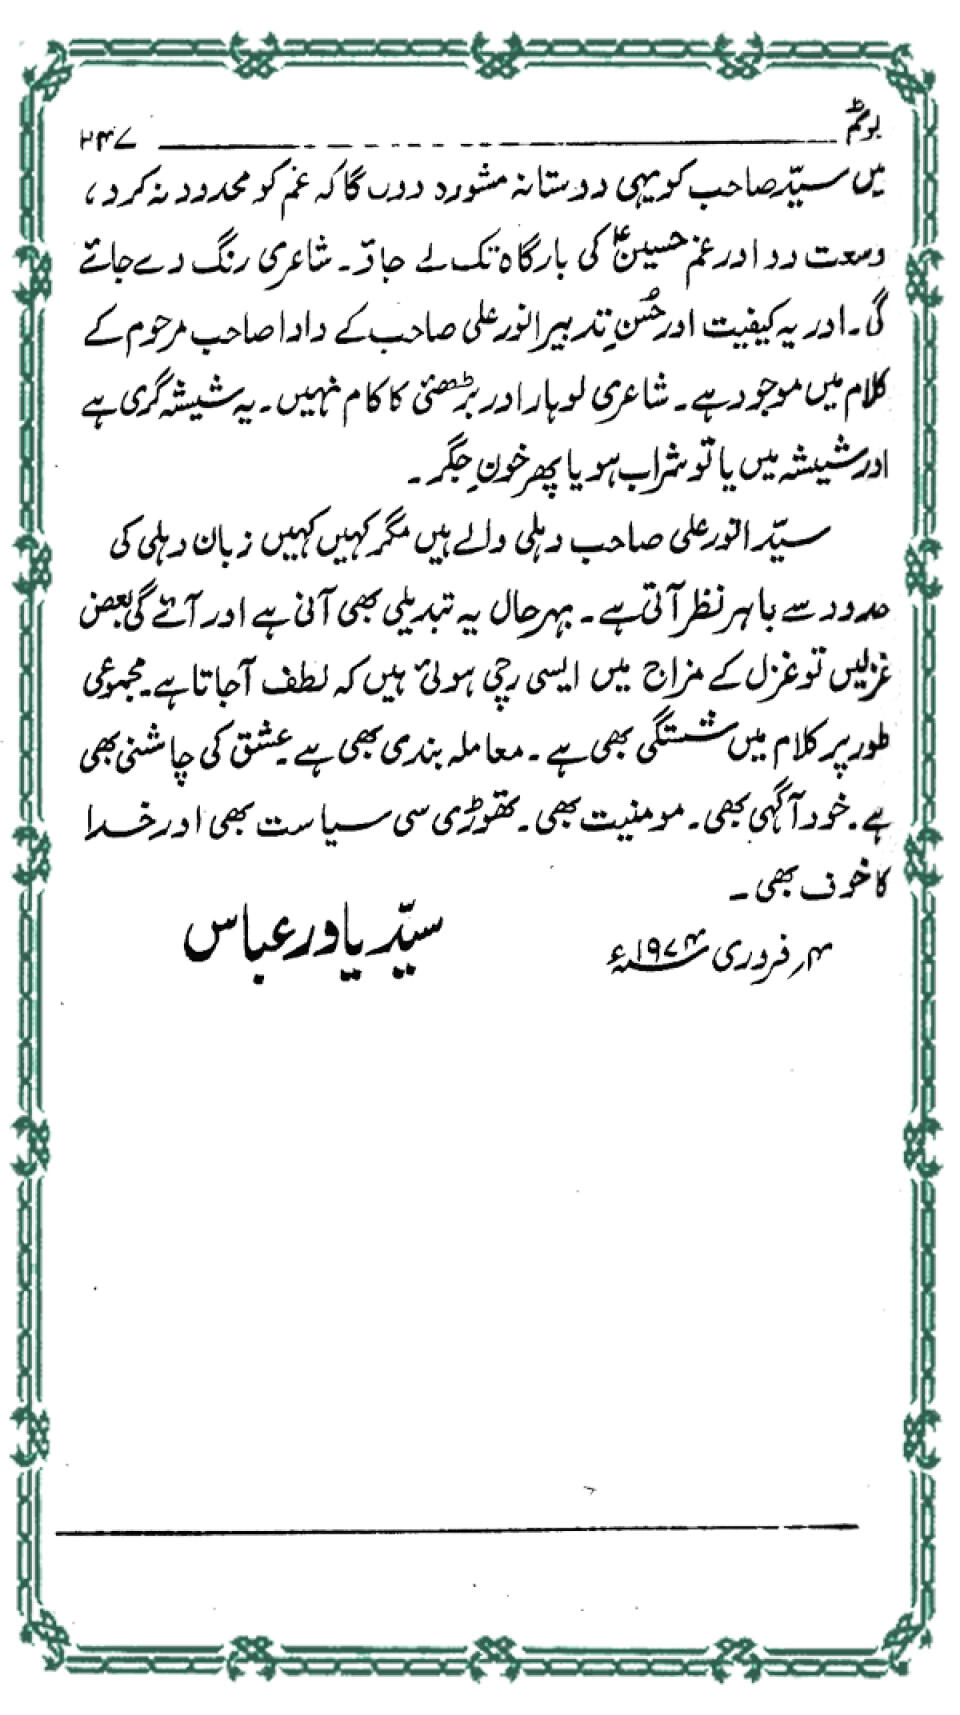 بوگم ۲۴۷
میں سیّد صاحب کو یہی دوستانہ مشورہ دوں گا کہ غم کو محدود نہ کرو،
وسعت دو اور غم حسینؑ کی بارگاہ تک لے جاؤ۔ شاعری رنگ دے جائے
گی۔ اور یہ کیفیت اور حُسنِ تدبیر انور علی صاحب کے دادا صاحب مرحوم کے
کلام میں موجود ہے۔ شاعری لوہار اور بڑھئی کا کام نہیں۔ یہ شیشہ گری ہے
اور شیشہ میں یا تو شراب ہو یا پھر خونِ جگر۔
سیّد انور علی صاحب دہلی والے ہیں مگر کہیں کہیں زبان دہلی کی
حدود سے باہر نظر آتی ہے۔ بہر حال یہ تبدیلی بھی آنی ہے اور آئے گی بعض
غزلیں تو غزل کے مزاج میں ایسی رچی ہوئی ہیں کہ لطف آجاتا ہے۔ مجموعی
طور پر کلام میں شستگی بھی ہے۔ معاملہ بندی بھی ہے۔ عشق کی چاشنی بھی
ہے۔ خود آگہی بھی۔ مومنیت بھی۔ تھوڑی سی سیاست بھی اور خدا
کا خوف بھی۔
۴؍ فروری ۱۹۷۴ء سیّد یاور عباس